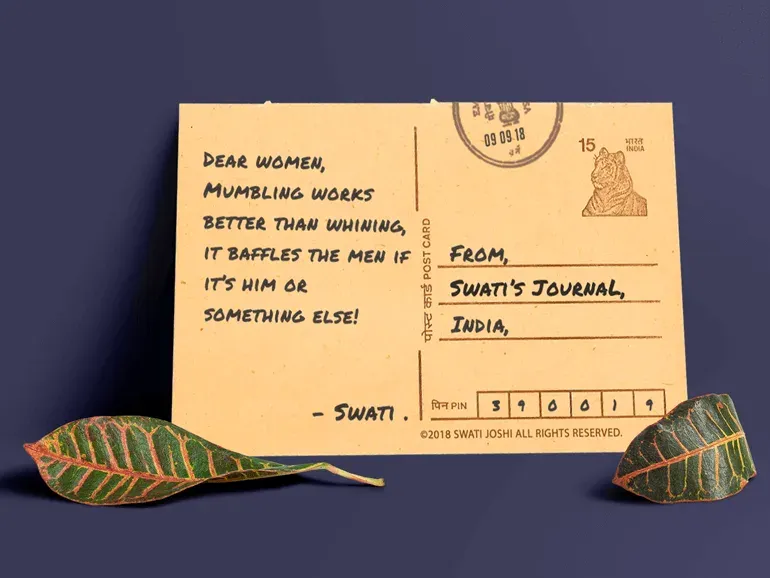 DEAR WOMEN,
MUMBLING WORKS
BETTER THAN WHINING,
IT BAFFLES THE MEN IF
IT'S HIM OR
SOMETHING ELSE!
- SWATI .
09 09 18
15 भारत
INDIA
पोस्ट कार्ड POST CARD
FROM,
SWATI'S JOURNAL,
INDIA,
पिन PIN 3 9 0 0 1 9
©2018 SWATI JOSHI ALL RIGHTS RESERVED.